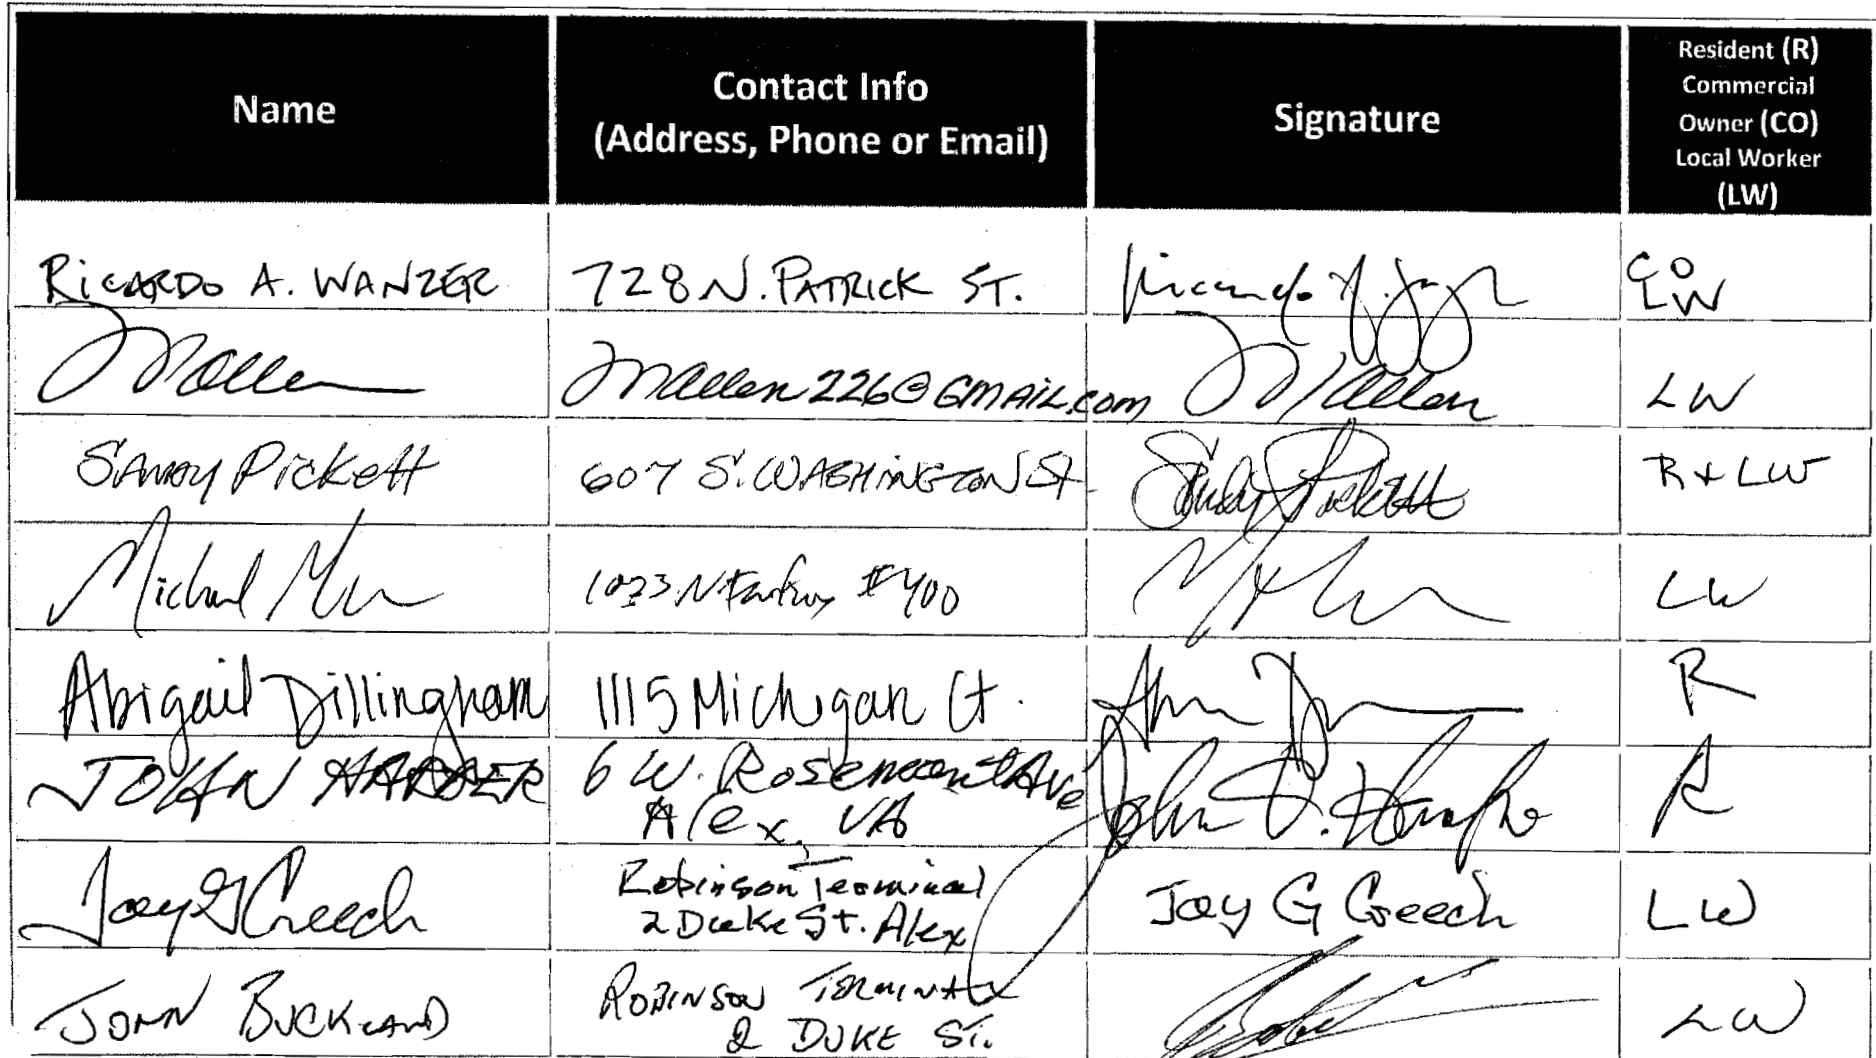 Name
Contact Info
(Address, Phone or Email)
Signature
Resident (R)
Commercial
Owner (CO)
Local Worker
(LW)
RICARDO A. WANZER 728 N. PATRICK ST. CO
LW
Mallen Mallen226@GMAIL.com Mallen LW
SANDY PICKETT 607 S. WASHINGTON St. Sandy Pickett R + LW
Michael #400 LW
Abigail Dillingham 1115 Michigan Ct. R
JOHN HARDER 6 W. Rosemont Ave John R
Alex, VA
Joy G Creech Robinson Terminal Joy G Creech LW
2 Duke St. Alex
JOHN BUCKLAND ROBINSON TERMINAL LW
2 DUKE ST.